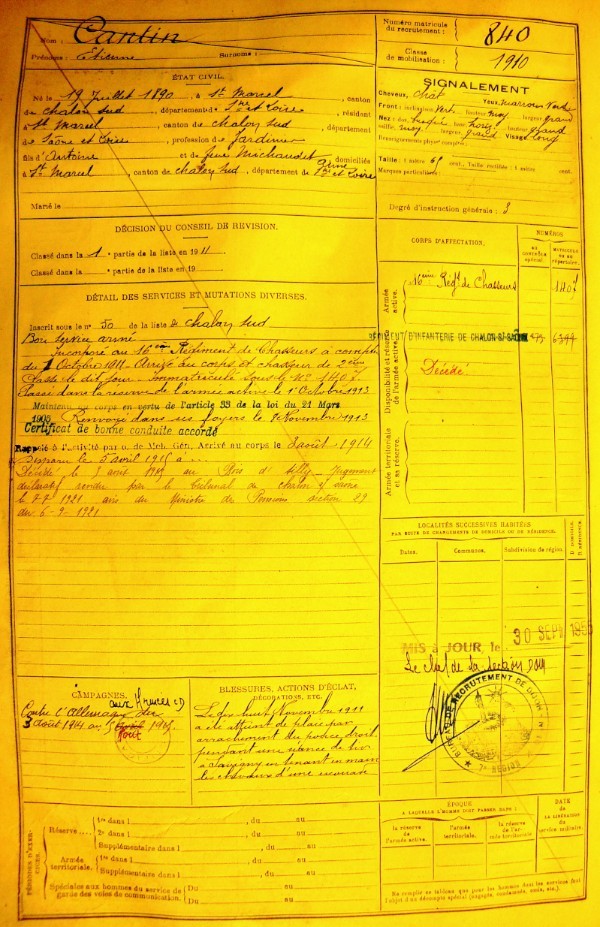 Nom : Cantin
Prénoms : Etienne Surnoms :
Numéro matricule du recrutement : 840
Classe de mobilisation : 1910
ÉTAT CIVIL.
Né le 19 Juillet 1890, à St Marcel, canton
de Chalon Sud, département Sne et Loire, résidant
à St Marcel, canton de Chalon Sud, département
de Saône et Loire, profession de Jardinier
fils d'Antoine et de Jne Michaudet, domiciliés
à St Marcel, canton de Chalon Sud, département de Sne et Loire
Marié le
SIGNALEMENT
Cheveux, Chât Yeux, marron Verts
Front : inclinaison Vert hauteur moy largeur grand
Nez : dos base horiz hauteur grand
saillie moy largeur grand Visage long
Renseignements physio
Taille : 1 mètre 65 cent. Taille rectifiée : 1 mètre cent.
Marques particulières :
Degré d'instruction générale : 3
DÉCISION DU CONSEIL DE REVISION.
Classé dans la 1e partie de la liste en 1911
Classé dans la e partie de la liste en 19
DÉTAIL DES SERVICES ET MUTATIONS DIVERSES.
Inscrit sous le n° 50 de la liste de Chalon Sud
Bon service armé
Incorporé au 16ème Régiment de Chasseurs à compter
du 1 Octobre 1911. Arrivé au corps et chasseur de 2ème
classe le dit jour. Immatriculé sous le N° 1407
Passé dans la réserve de l'armée active le 1 Octobre 1913
Maintenu au corps en vertu de l'article 33 de la loi du 21 Mars
1905 Renvoyé dans ses foyers le 8 Novembre 1913
Certificat de bonne conduite accordé
Rappelé à l'activité par o. de Mob. Gén. Arrivé au corps le 3 août 1914
Disparu le 5 avril 1915 à
Décédé le 5 avril 1915 au Bois d'Ailly Jugement
déclaratif rendu par le tribunal de Chalon s/ Saône
le 7-7-1921 avis du Ministre des Pensions section 29
du 6-9-1921
CORPS D'AFFECTATION.
NUMÉROS
au contrôle spécial.
matricule au répertoire.
Armée active.
16ème Régt de Chasseurs 1407
Disponibilité et réserve de l'armée active.
RÉGIMENT D'INFANTERIE DE CHALON-S/-SAÔNE 6399
Décédé
Armée territoriale et sa réserve.
LOCALITÉS SUCCESSIVES HABITÉES
PAR SUITE DE CHANGEMENTS DE DOMICILE OU DE RÉSIDENCE.
Dates. Communes. Subdivision de région. D. domicile. R. résidence.
MIS à JOUR, le 30 SEPT
Le Chef de la section
BUREAU DE RECRUTEMENT DE DIJON
CAMPAGNES.
Contre l'Allemagne du
aux Armées CD
3 août 1914 au 5 avril 1915
BLESSURES, ACTIONS D'ÉCLAT, DÉCORATIONS, ETC.
Le dix huit novembre 1911
a été atteint de plaie par
arrachement du pouce droit
pendant une séance de tir
à Savigny en tenant en main
les chevaux d'une escouade
PÉRIODES D'EXERCICES.
Réserve
1re dans l , du au
2e dans l , du au
Supplémentaire dans l , du au
Armée territoriale.
1re dans l , du au
Supplémentaire dans l , du au
Spéciales aux hommes du service de garde des voies de communication.
Du au
Du au
ÉPOQUE
À LAQUELLE L'HOMME DOIT PASSER DANS :
la réserve de l'armée active.
l'armée territoriale.
la réserve de l'armée territoriale
DATE de LA LIBÉRATION du service militaire.
Ne remplir ce tableau que pour les hommes dont les services font
l'objet d'un décompte spécial (engagés, condamnés, omis, etc.)